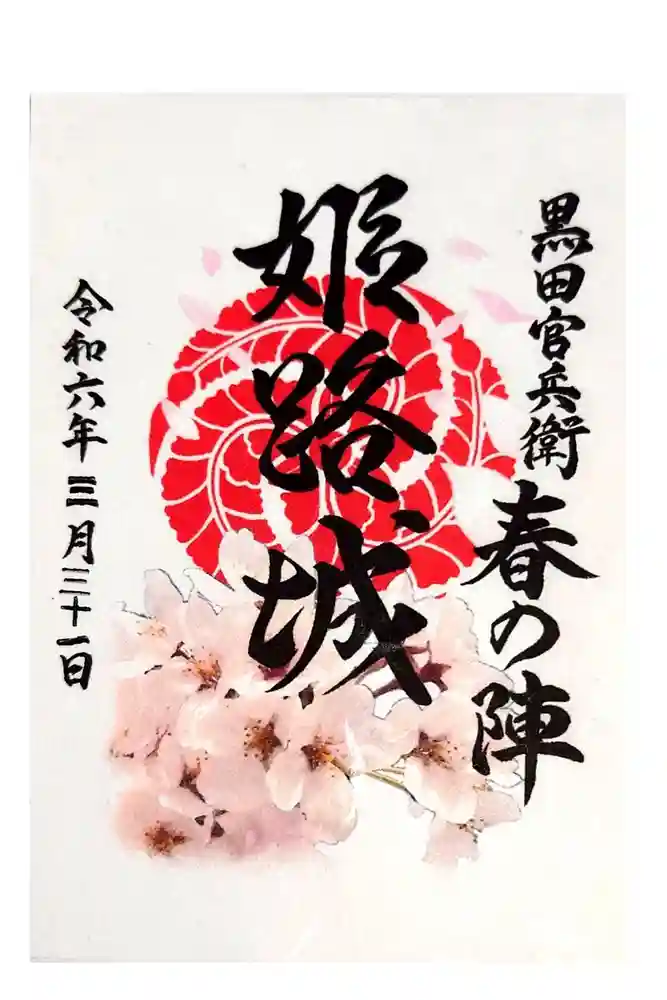 黒田官兵衛
春の陣
姫路城
令和六年三月三十一日